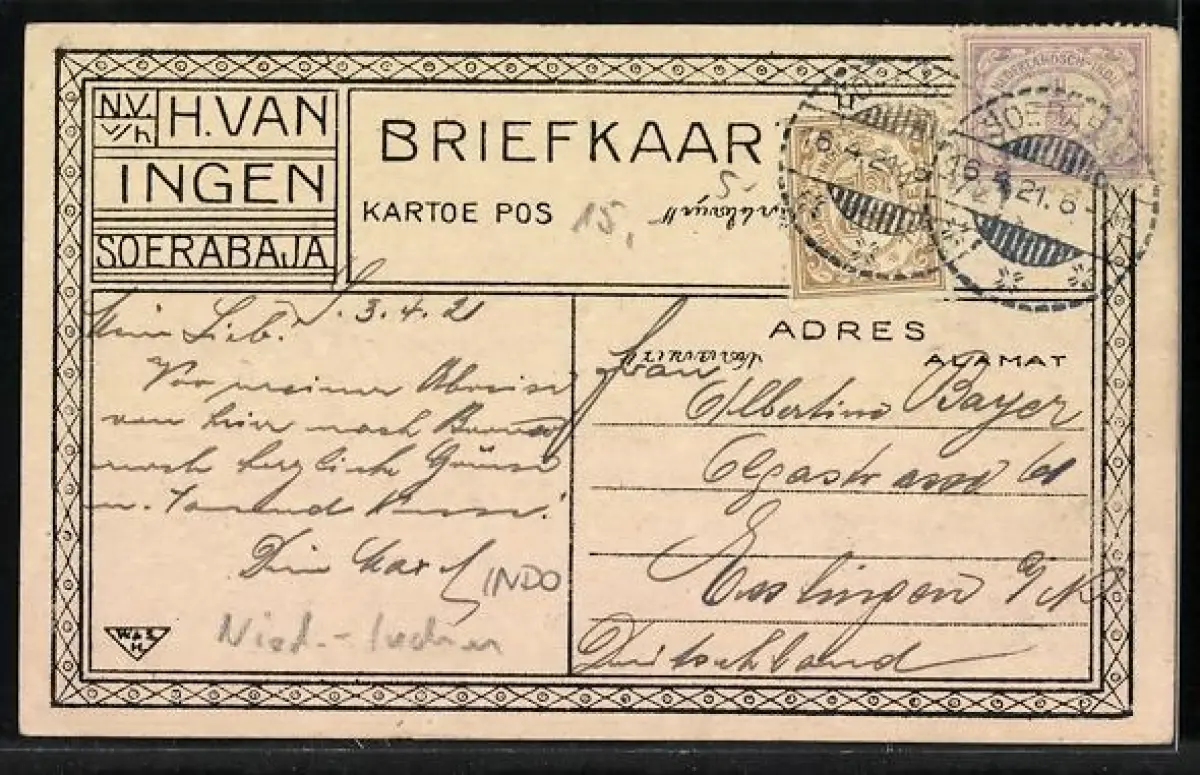 N.V. v/h H. VAN
INGEN
SOERABAJA
BRIEFKAART
KARTOE POS
15,
5
NEDERLANDSCH-INDIË
SOERAB
16.4.21.6
S. 3.4.21
Mein Lieb!
Vor meiner Abreise
von hier nach
noch herzliche Grüsse
u. tausend Küsse!
Dein Karl
INDO
Nied.-Indien
W & S
H
ADRES
ALAMAT
Frau
Albertine Bayer
Olgastrasse 61
Esslingen a/N
Deutschland